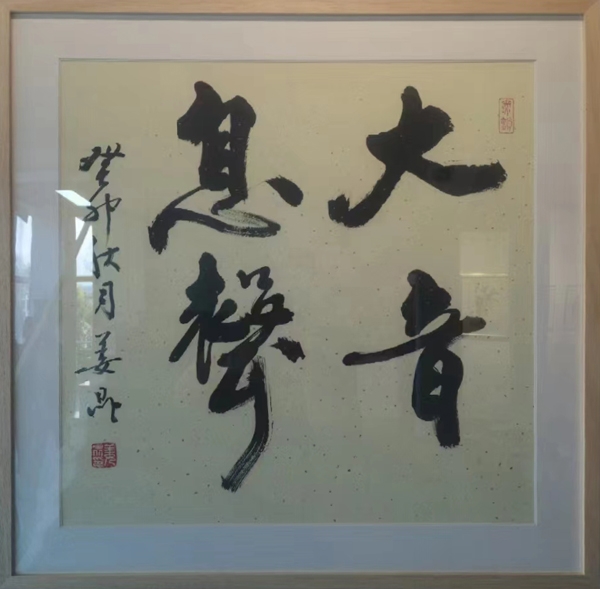 大音
息聲
癸卯秋月姜鼎